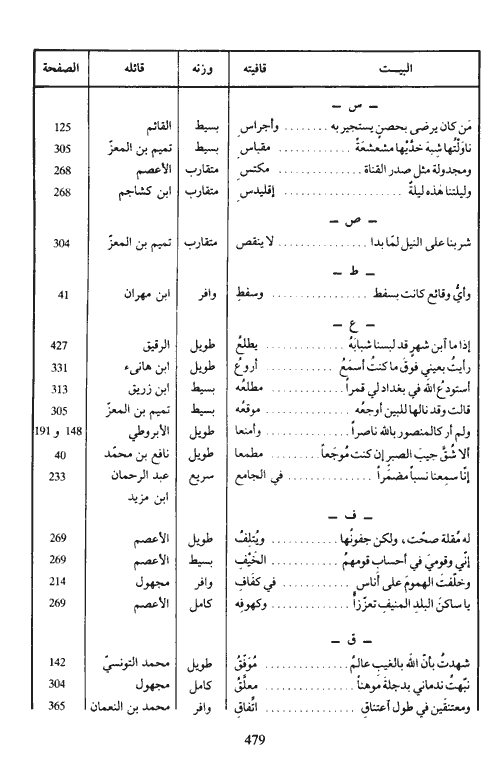 البيت قافيته وزنه قائله الصفحة
– س –
مَن كان يرضى بحصنٍ يستجير به ........ وأجراسِ بسيط القائم 125
ناوَلْتُها شِبهَ خدَّيْها مشعشعَةً ........ مقباسِ بسيط تميم بن المعزّ 305
ومجدولة مثل صدر القناة ........ مكتسِ متقارب الأعصم 268
وليلتنا هٰذه ليلةٌ ........ إقليدسِ متقارب ابن كشاجم 268
– ص –
شربنا على النيل لمّا بدا ........ لا ينقص متقارب تميم بن المعزّ 304
– ط –
وأيُّ وقائع كانت بسفط ........ وسفطِ وافر ابن مهران 41
– ع –
إذا ما ٱبن شهرٍ قد لبسنا شبابَهُ ........ يطلعُ طويل الرقيق 427
رأيتُ بعيني فوقَ ما كنتُ أسمَعُ ........ أروعُ طويل ابن هانىء 331
أستودعُ اللّه في بغداد لي قمراً ........ مطلعُه بسيط ابن زريق 313
قالت وقد نالها للبين أوجعُه ........ موقعُه بسيط تميم بن المعزّ 305
ولم أر كالمنصور باللّه ناصراً ........ وأمنعا طويل الأبروطي 148 و 191
ألا شُقَّ جيبَ الصبرِ إن كنت مُوَجعاً ........ مطمعا طويل نافع بن محمّد 40
إنّا سمِعنا نسباً مضمَراً ........ في الجامع سريع عبد الرحمان 233
ابن مزيد
– ف –
له مُقلة صحّت، ولكن جفونُها ........ ويُتلِفُ طويل الأعصم 269
إنّي وقوميَ في أحساب قومهمُ ........ الخَيْفِ بسيط الأعصم 269
وخلّفتَ الهمومَ على أناس ........ في كفافِ وافر مجهول 214
يا ساكنَ البلدِ المنيفِ تعزّزاً ........ وكهوفِه كامل الأعصم 269
– ق –
شهدتُ بأنّ اللّه بالغيبِ عالمُ ........ مُوَفّقُ طويل محمد التونسيّ 142
نبّهتُ ندماني بدجلةَ مَوهناً ........ معلَّقُ كامل مجهول 304
ومعتنقَين في طول ٱعتناقِ ........ ٱتّفاقِ وافر محمد بن النعمان 365
479